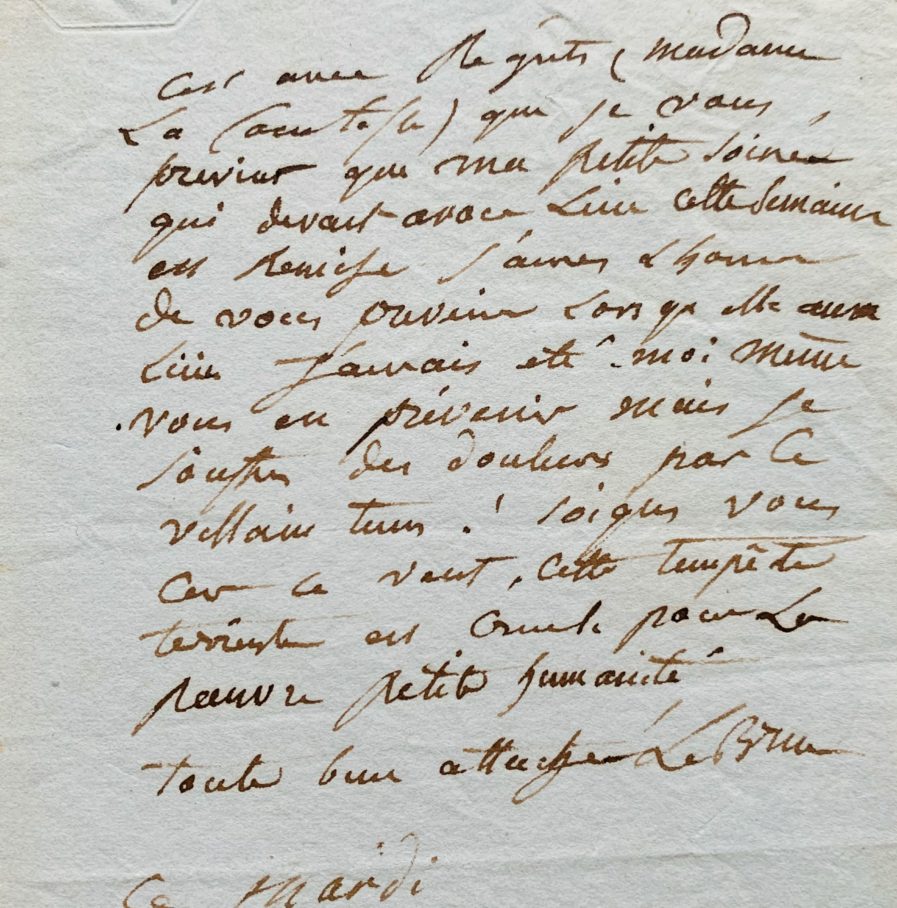 Cest avec Regrets (madame
La Comtesse) que je vous
previens que ma petite soirée
qui devait avoir Lieu cette semaine
est Remise j'aures L'honneur
de vous prevenir Lorsqu elle aura
Lieu j'aurais été moi même
vous en prévenir mais je
souffre des douleurs par ce
villain tems ! soignes vous
Car ce vent, cette tempête
terrestre est cruele pour La
pauvre petite humanité
toute bien attachée Le Brun
Ce Mardi